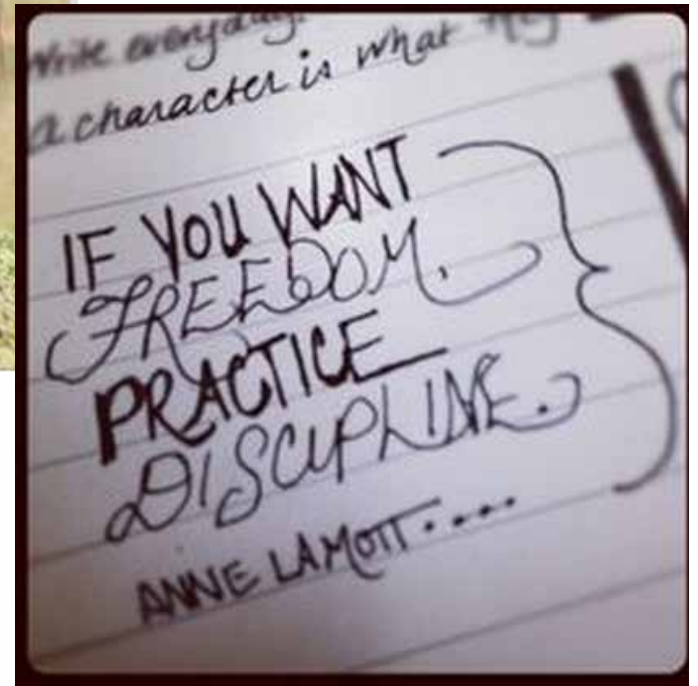 Write everyday.
a character is what
IF YOU WANT
FREEDOM.
PRACTICE
DISCIPLINE.
ANNE LAMOTT....